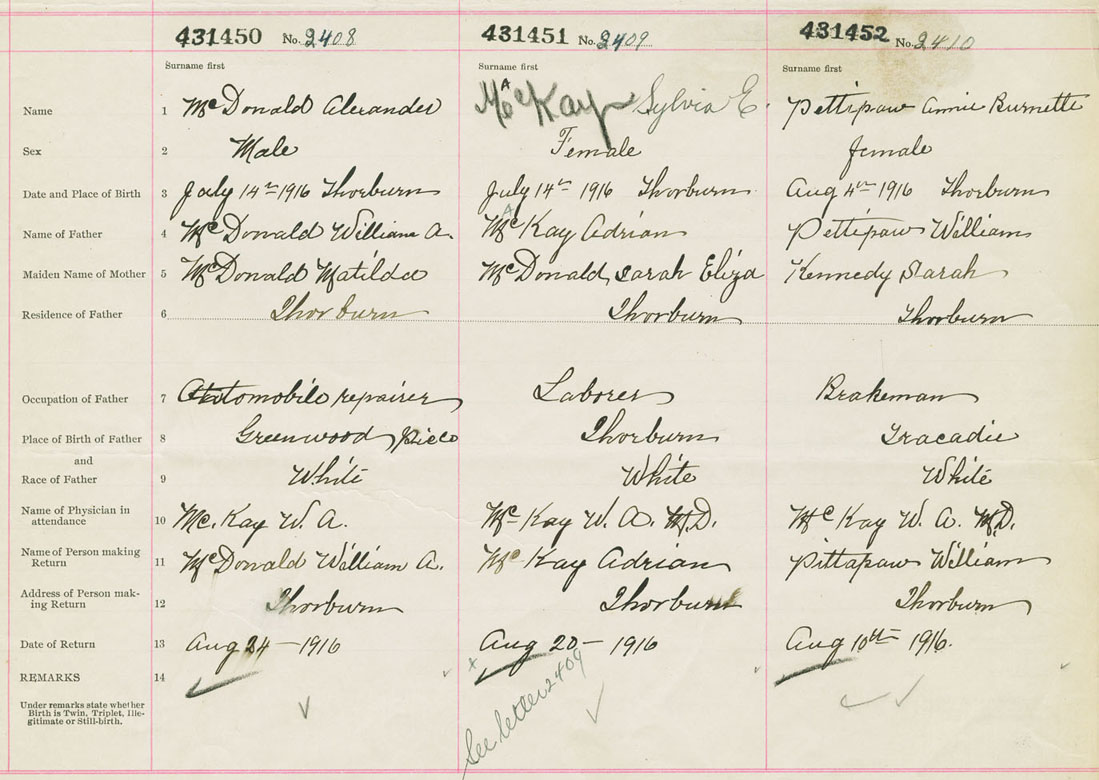 431450 No. 2408 431451 No. 2409 431452 No. 2410
Surname first Surname first Surname first
Name 1 McDonald Alexander McKay Sylvia E. Pettipaw Annie Burnette
Sex 2 Male Female female
Date and Place of Birth 3 July 14th 1916 Thorburn July 14th 1916 Thorburn Aug 4th 1916 Thorburn
A
Name of Father 4 McDonald William A. McKay Adrian Pettipaw William
Maiden Name of Mother 5 McDonald Matilda McDonald, Sarah Eliza Kennedy Sarah
Residence of Father 6 Thorburn Thorburn Thorburn
Occupation of Father 7 Automobile repairer Laborer Brakeman
Place of Birth of Father 8 Greenwood, Picto Thorburn Tracadie
and
Race of Father 9 White White White
Name of Physician in
attendance 10 Mc. Kay W. A. McKay W. A. M.D. McKay W. A. M.D.
Name of Person making
Return 11 McDonald William A. McKay Adrian Pittapaw William
Address of Person mak-
ing Return 12 Thorburn Thorburn Thorburn
Date of Return 13 Aug 24 - 1916 Aug 20 - 1916 Aug 10th 1916.
REMARKS 14
x See letter 2409
Under remarks state whether
Birth is Twin, Triplet, Ille-
gitimate or Still-birth.